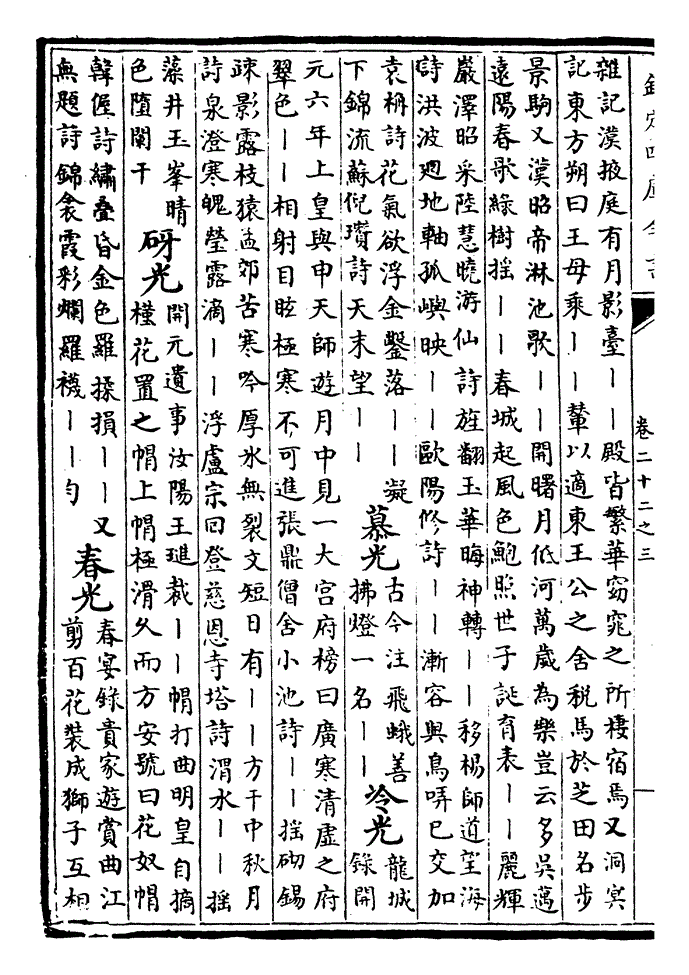 欽定四庫全書
卷二十二之三
雜記漢掖庭有月影臺丨丨殿皆繁華窈窕之所棲宿焉又洞冥
記東方朔曰王母乘丨丨輦以適東王公之舍税馬於芝田名步
景駒又漢昭帝淋池歌丨丨開曙月低河萬歲為樂豈云多吳邁
遠陽春歌綠樹摇丨丨春城起風色鮑照世子誕育表丨丨麗輝
嚴澤昭采陸慧曉游仙詩旌翻玉華晦神轉丨丨移楊師道望海
詩洪波迴地軸孤嶼映丨丨歐陽修詩丨丨漸容與鳥哢已交加
袁桷詩花氣欲浮金鑿落丨丨凝
下錦流蘇倪瓚詩天末望丨丨
慕光
古今注飛蛾善
拂燈一名丨丨
冷光
龍城
錄開
元六年上皇與申天師遊月中見一大宫府榜曰廣寒清虚之府
翠色丨丨相射目眩極寒不可進張鼎僧舍小池詩丨丨摇砌錫
疎影露枝猿孟郊苦寒吟厚氷無裂文短日有丨丨方干中秋月
詩泉澄寒魄瑩露滴丨丨浮盧宗回登慈恩寺塔詩渭水丨丨摇
藻井玉峯晴
色墮闌干
砑光
開元遺事汝陽王璡裁丨丨帽打曲明皇自摘
槿花置之帽上帽極滑久而方安號曰花奴帽
韓偓詩繡疊昏金色羅揉損丨丨又
無題詩錦衾霞彩爛羅襪丨丨勻
春光
春宴錄貴家遊賞曲江
剪百花装成獅子互相